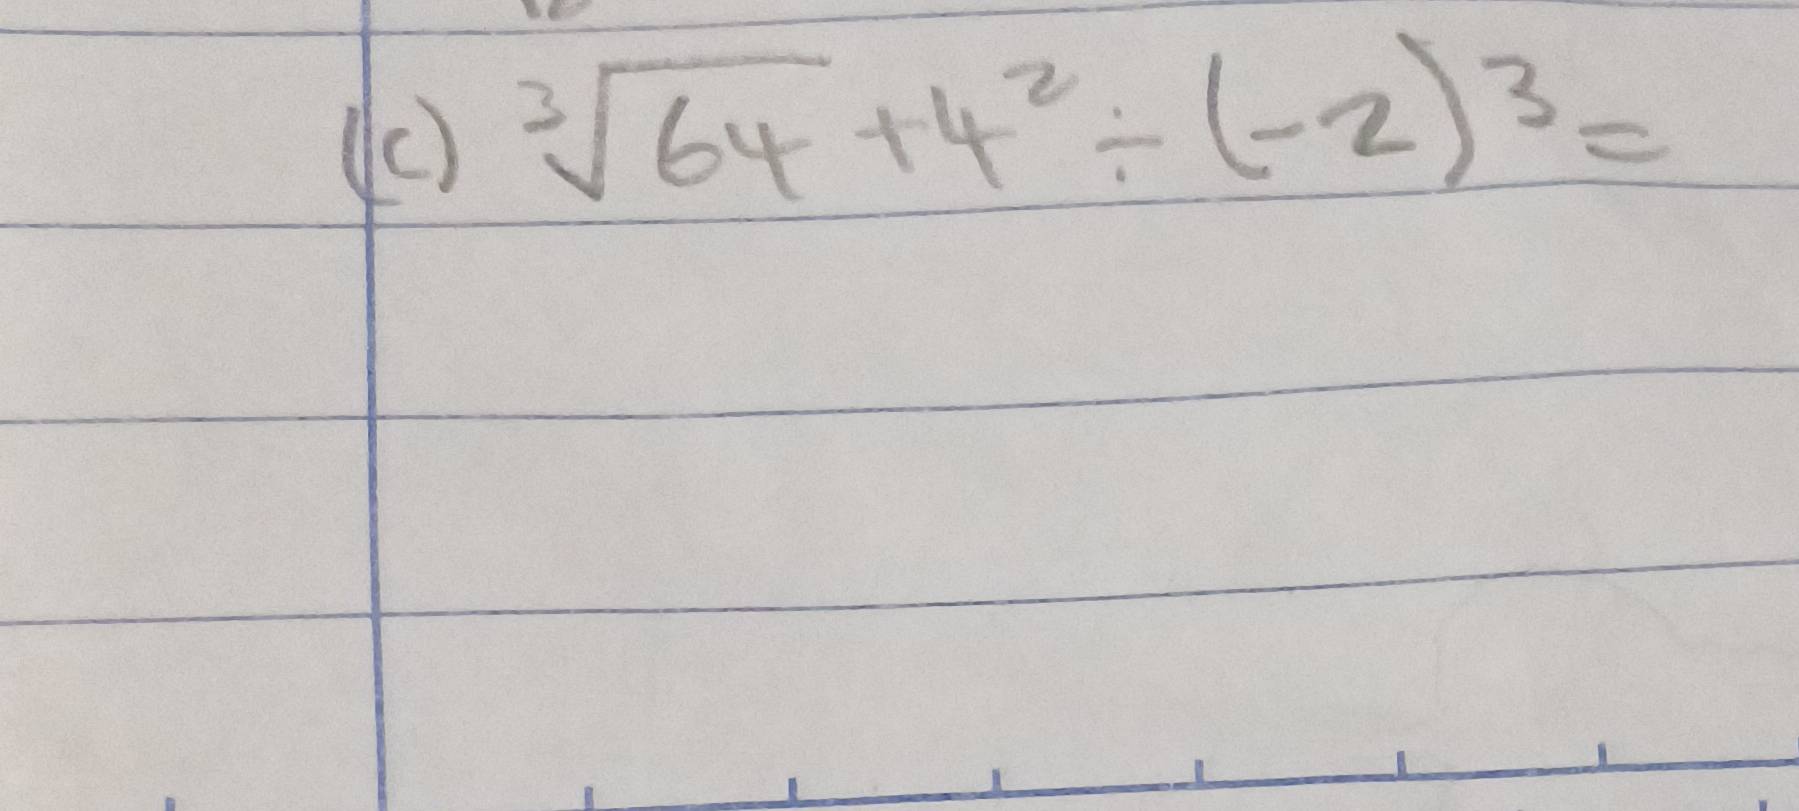 (c) ³√64 + 4² ÷ (-2)³ =